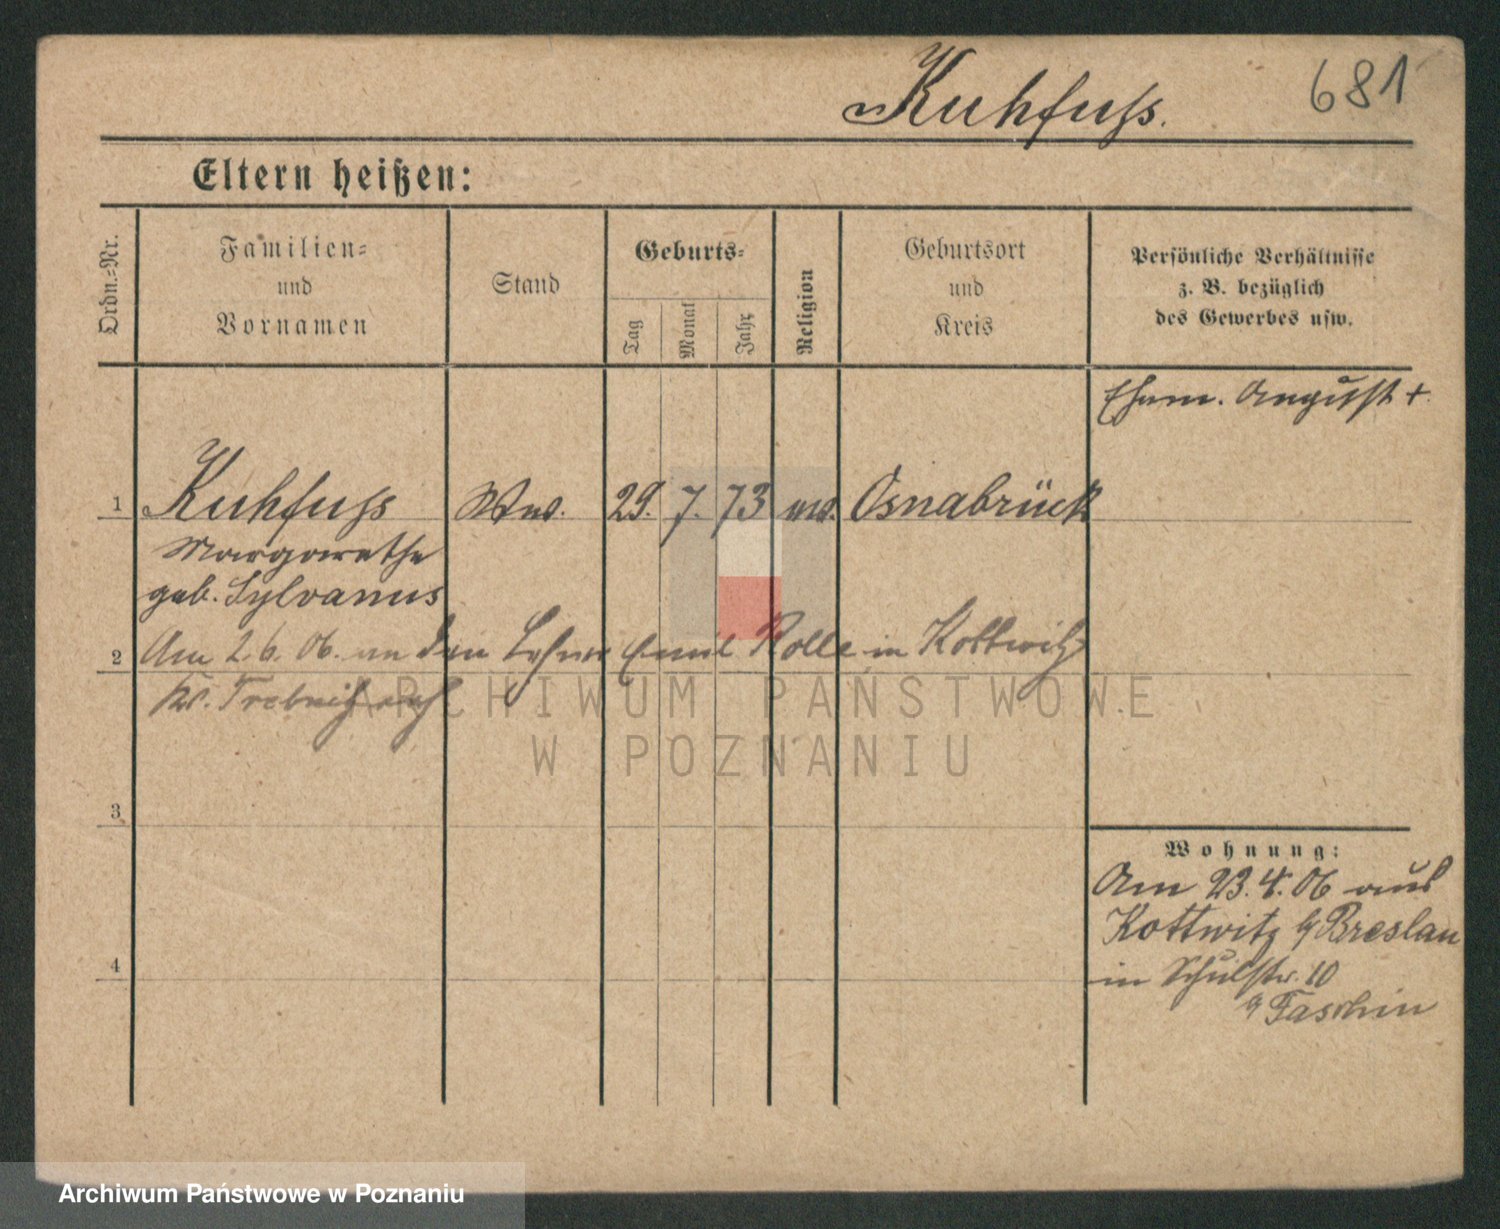 Kuhfuss.
681
Eltern heißen:
Ordn.=Nr.
Familien=
und
Vornamen
Stand
Geburts=
Tag
Monat
Jahr
Religion
Geburtsort
und
Kreis
Persönliche Verhältnisse
z. B. bezüglich
des Gewerbes usw.
Ehem. August +.
1 Kuhfuss Ww. 29. 7. 73 Osnabrück
Margarethe
geb. Sylvanus
2 Am 2.6.06. an den Lehrer Emil Rolle in Kottwitz
Kr. Trebnitz
3
4
Wohnung:
Am 23.4.06 aus
Kottwitz b/Breslau
in Schulstr. 10
ARCHIWUM PAŃSTWOWE
W POZNANIU
Archiwum Państwowe w Poznaniu